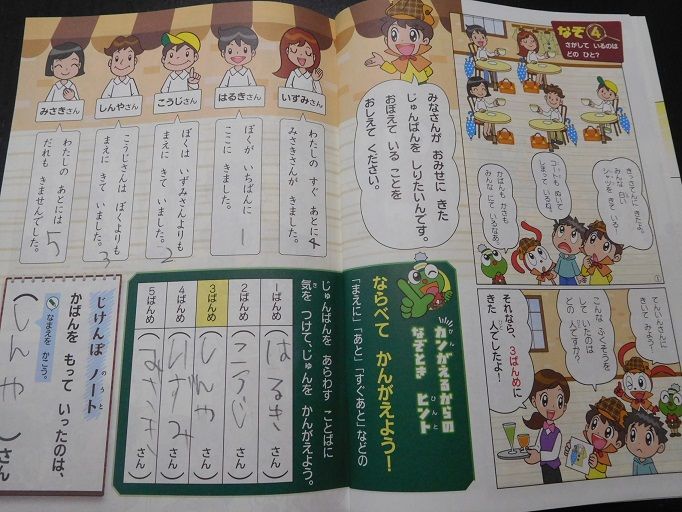 なぞ4
さがして いるのは
どの ひと？
きっさてんに きたよ。
みんな 白い
シャツを きて いる！
コートも ぬいで
しまって いるね。
かばんも かさも
みんな にて いるなあ。
①
てんいんさんに
きいて みよう！
こんな ふくそうを
して いたのは
どの 人ですか？
それなら、3ばんめに
きた 人でしたよ！
みなさんが おみせに きた
じゅんばんを しりたいんです。
おぼえて いる ことを
おしえて ください。
いずみさん
わたしの すぐ あとに
みさきさんが きました。
4
はるきさん
ぼくが いちばんに
ここに きました。
1
こうじさん
ぼくは いずみさんよりも
まえに きて いました。
2
しんやさん
こうじさんは ぼくよりも
まえに きて いました。
3
みさきさん
わたしの あとには
だれも きませんでした。
5
カンがえるからの
なぞとき ヒント
ならべて かんがえよう！
「まえに」「あと」「すぐあと」などの
じゅんばんを あらわす ことばに
気を つけて、じゅんを かんがえよう。
1ばんめ（はるき さん）
2ばんめ（こうじ さん）
3ばんめ（しんや さん）
4ばんめ（いずみ さん）
5ばんめ（みさき さん）
じけんぼ ノート
かばんを もって いったのは、
なまえを かこう。
（しんや）さん